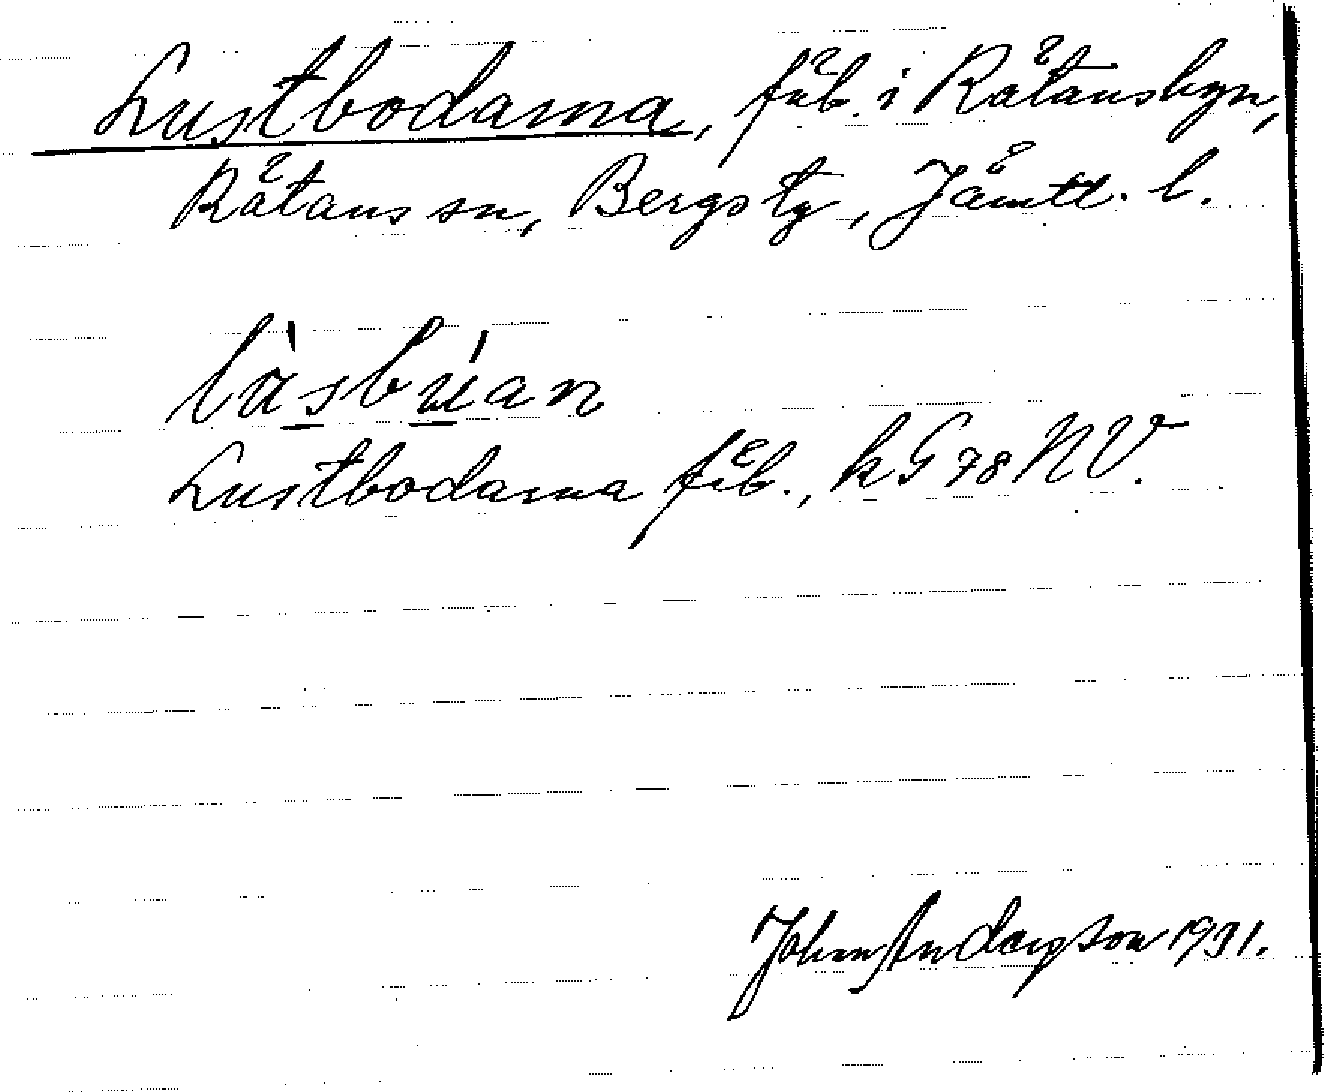 Lustbodarna, fäb. i Rätansbyn,
Rätans sn, Bergs tg, Jämtl. l.
làsbúan
Lustbodarna fäb., kG 78 NV.
John Anderson 1931.